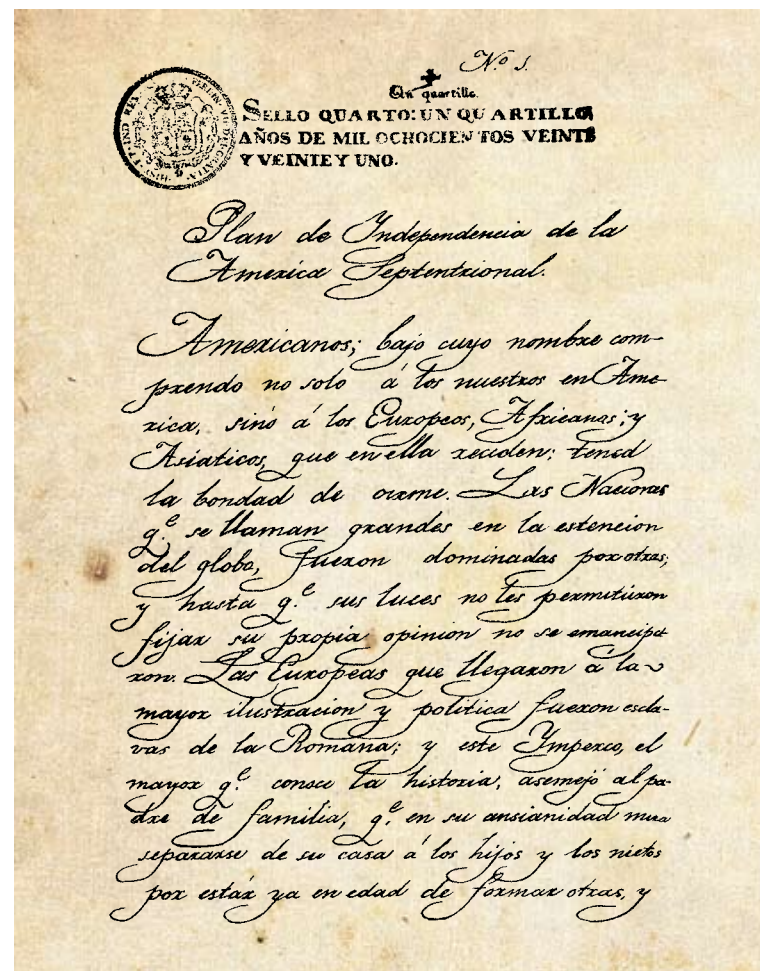 Nº 1.
Un quartillo.
SELLO QUARTO: UN QUARTILLO
AÑOS DE MIL OCHOCIENTOS VEINTE
Y VEINTE Y UNO.
Plan de Independencia de la
America Septentrional.
Americanos; bajo cuyo nombre com-
prendo no solo á los nuestros en Ame-
rica, sinó á los Europeos, Africanos; y
Asiaticos, que en ella reciden: tened
la bondad de oirme. Las Naciones
q.ᵉ se llaman grandes en la estencion
del globo, fueron dominadas por otras;
y hasta q.ᵉ sus luces no les permitieron
fijar su propia opinion no se emancipa
ron. Las Europeas que llegaron á la
mayor ilustracion y politica fueron escla-
vas de la Romana; y este Ymperio, el
mayor q.ᵉ consce la historia, asemejó al pa-
dre de familia, q.ᵉ en su ansianidad mira
separarse de su casa á los hijos y los nietos
por estár ya en edad de formar otras, y